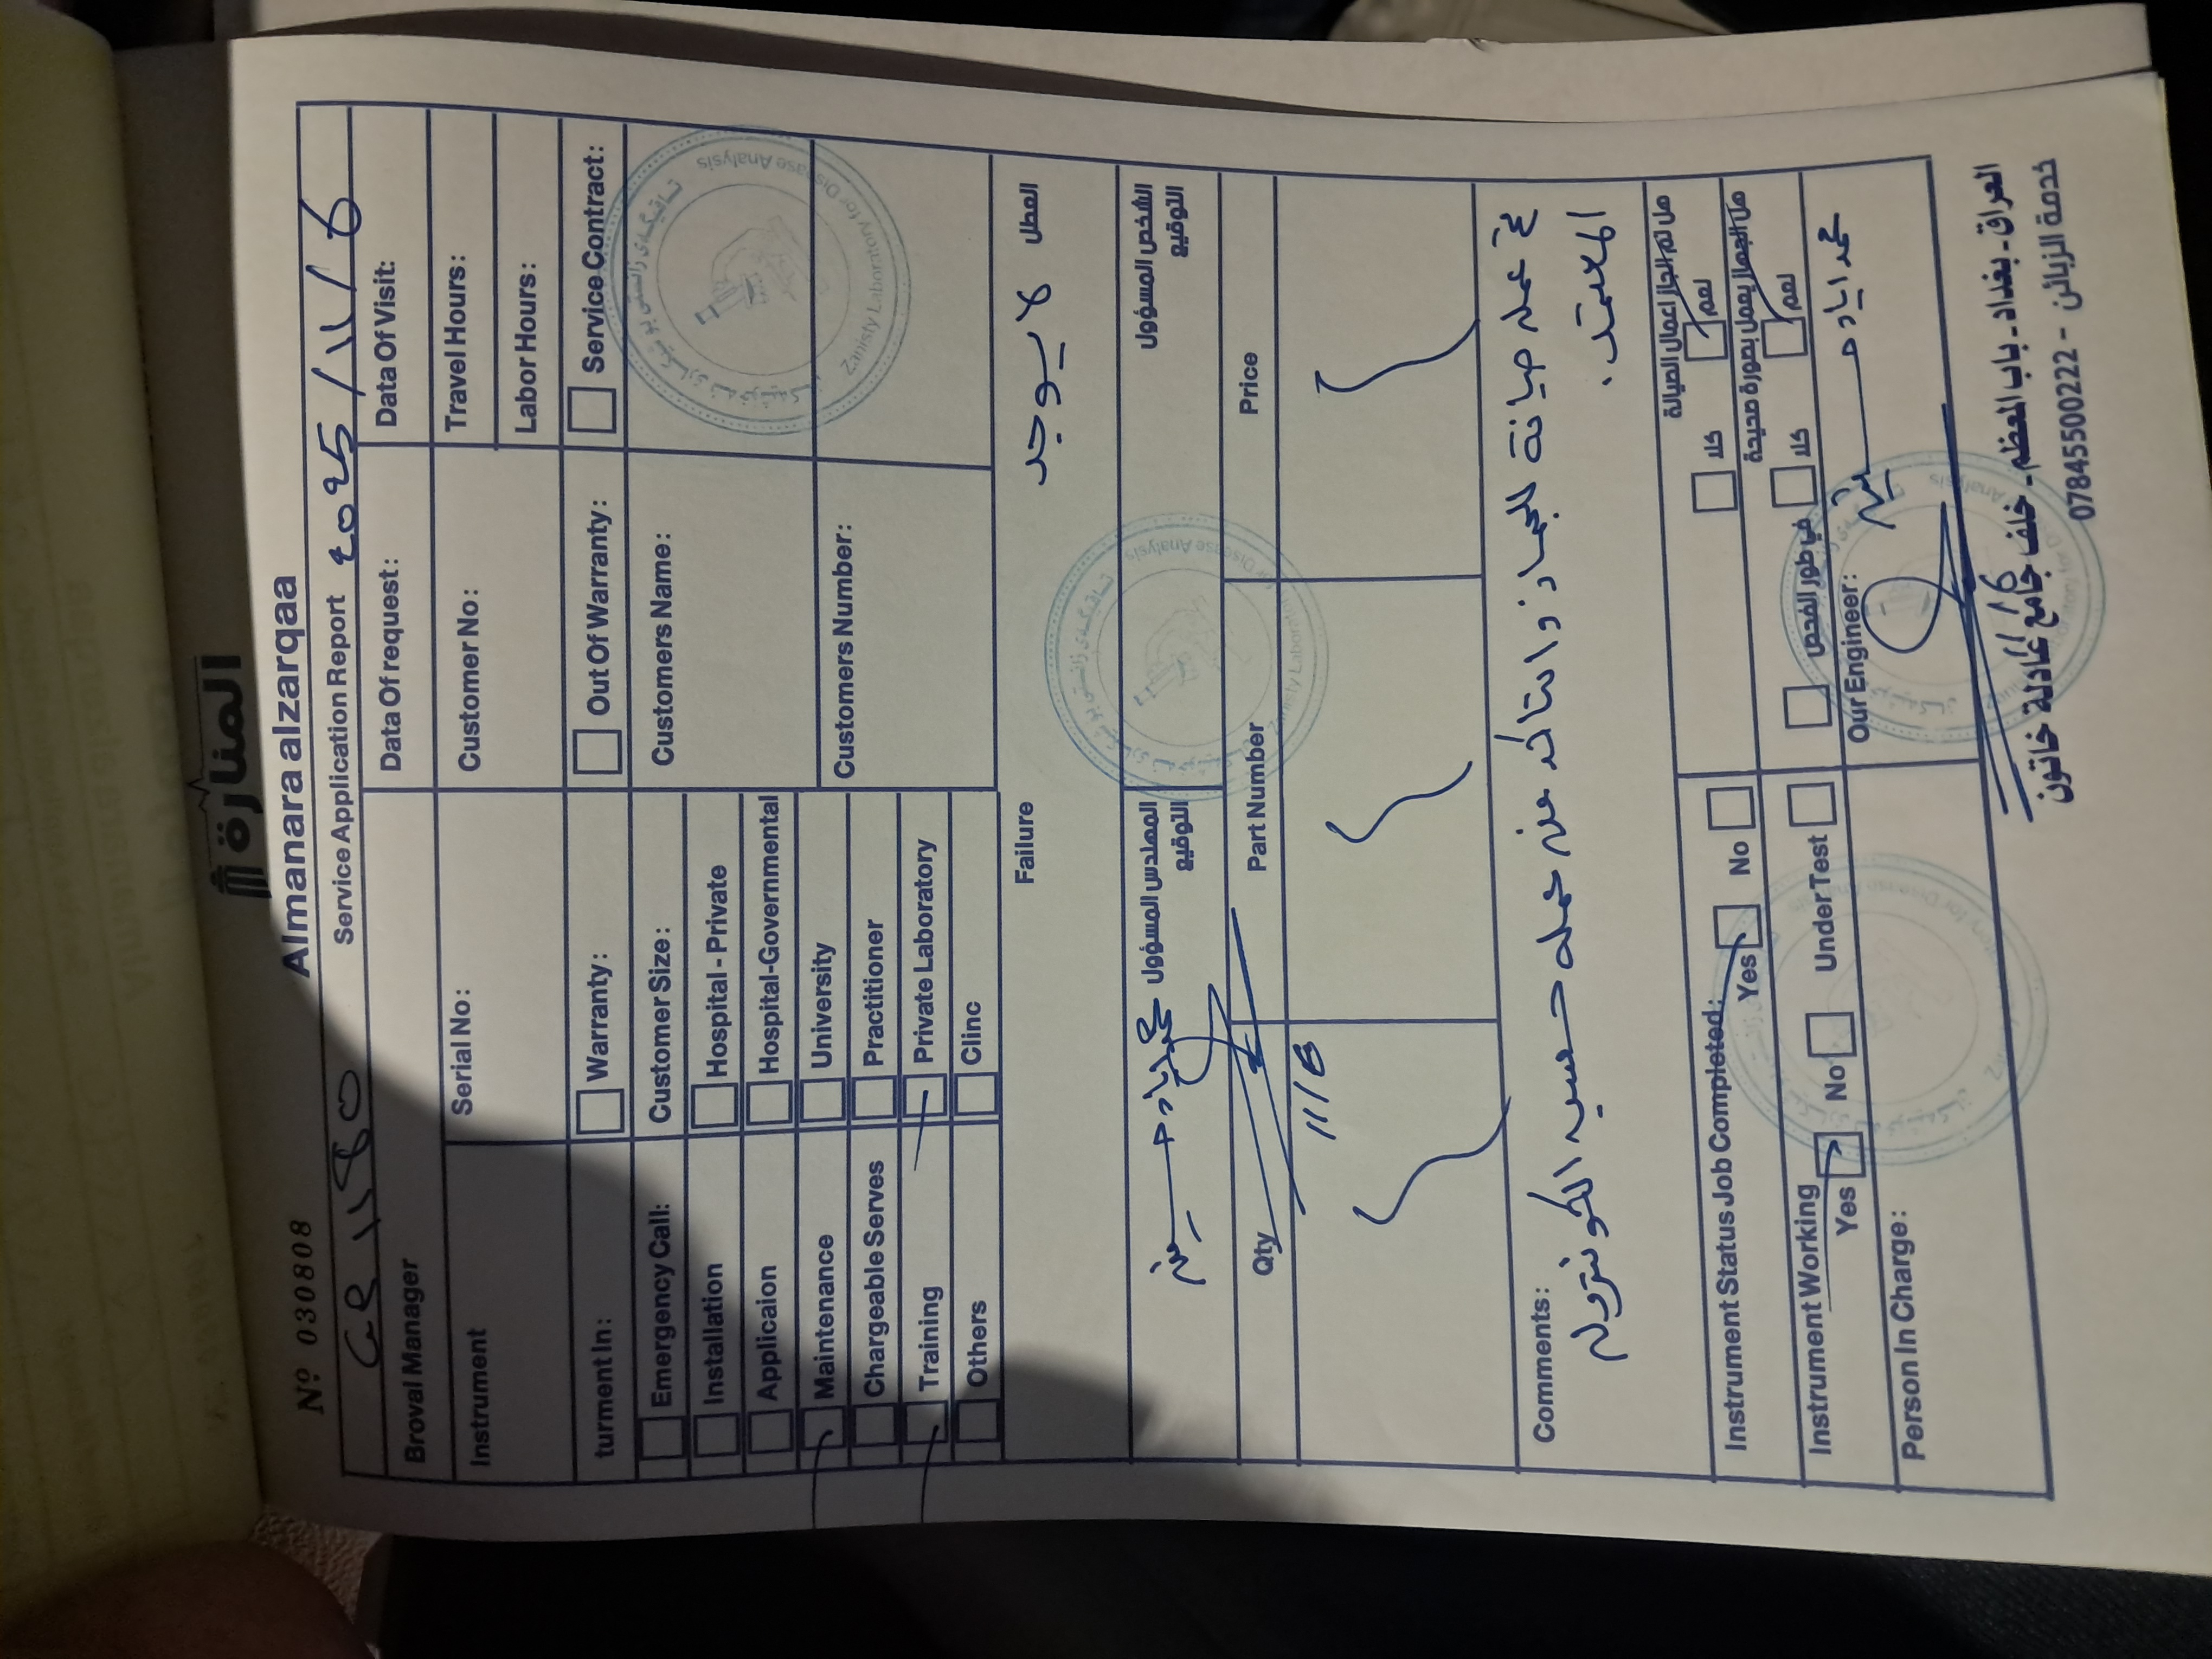 المنارة
Almanara alzarqaa
Nº 030808
Service Application Report 2025/11/6
Broval Manager
Data Of request:
Data Of Visit:
Instrument
Serial No:
Customer No:
Travel Hours:
Labor Hours:
turment In:
Warranty:
Out Of Warranty:
Service Contract:
Emergency Call:
Customer Size:
Customers Name:
Installation
Hospital - Private
Applicaion
Hospital-Governmental
Maintenance
University
Customers Number:
Chargeable Serves
Practitioner
Training
Private Laboratory
Others
Clinc
Zanisty Laboratory for Disease Analysis
Failure
العطل
لا يوجد
المهندس المسؤول
التوقيع
محمد اياد
الشخص المسؤول
التوقيع
Qty
Part Number
Price
Comments:
تم عمل صيانة للجهاز والتأكد من عمله حسب الكونترول
المعتمد.
Instrument Status Job Completed:
Yes
No
هل تم انجاز اعمال الصيانة
كلا
نعم
Instrument Working
Yes
No
Under Test
هل الجهاز يعمل بصورة صحيحة
في طور الفحص
كلا
نعم
Person In Charge:
Our Engineer:
محمد اياد
العراق - بغداد - باب المعظم - خلف جامع عادلة خاتون
خدمة الزبائن - 07845500222